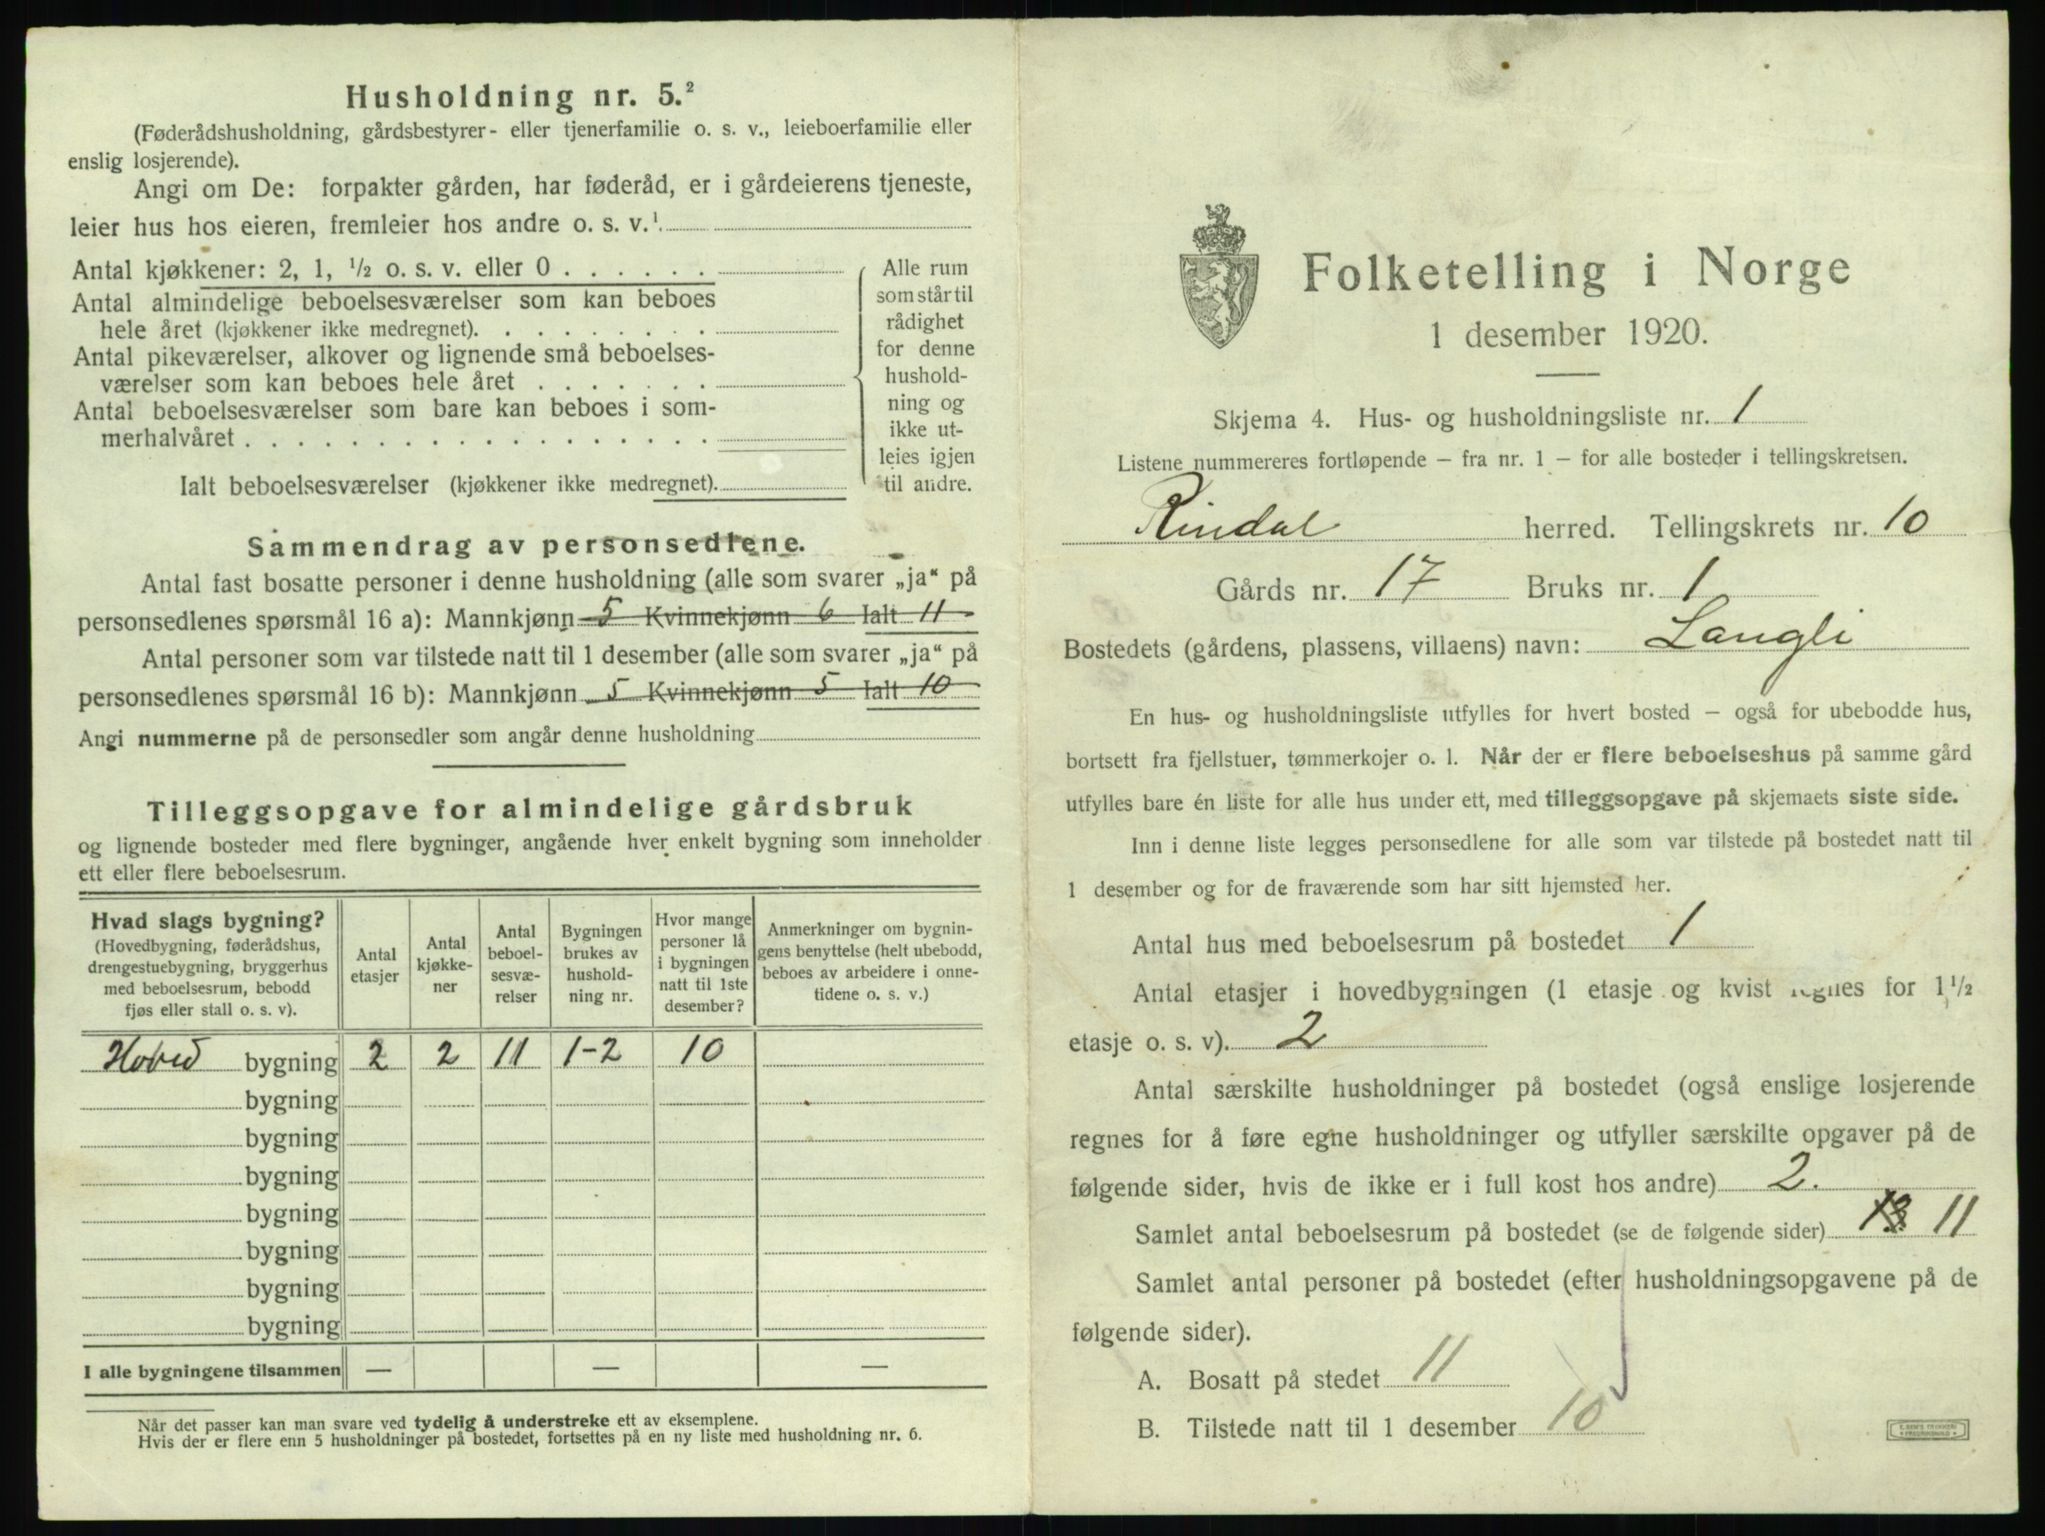 Husholdning nr. 5.²
(Føderådshusholdning, gårdsbestyrer- eller tjenerfamilie o. s. v., leieboerfamilie eller
enslig losjerende).
Angi om De: forpakter gården, har føderåd, er i gårdeierens tjeneste,
leier hus hos eieren, fremleier hos andre o. s. v.¹
Antal kjøkkener: 2, 1, ½ o. s. v. eller 0 . . . . . .
Antal almindelige beboelsesværelser som kan beboes
hele året (kjøkkener ikke medregnet). . . . . . . .
Antal pikeværelser, alkover og lignende små beboelses-
værelser som kan beboes hele året . . . . . . .
Antal beboelsesværelser som bare kan beboes i som-
merhalvåret . . . . . . . . . . . . . . . . . .
Alle rum
som står til
rådighet
for denne
hushold-
ning og
ikke ut-
leies igjen
til andre.
Ialt beboelsesværelser (kjøkkener ikke medregnet).
Sammendrag av personsedlene.
Antal fast bosatte personer i denne husholdning (alle som svarer „ja“ på
personsedlenes spørsmål 16 a): Mannkjønn 5 Kvinnekjønn 6 Ialt 11
Antal personer som var tilstede natt til 1 desember (alle som svarer „ja“ på
personsedlenes spørsmål 16 b): Mannkjønn 5 Kvinnekjønn 5 Ialt 10
Angi nummerne på de personsedler som angår denne husholdning
Tilleggsopgave for almindelige gårdsbruk
og lignende bosteder med flere bygninger, angående hver enkelt bygning som inneholder
ett eller flere beboelsesrum.
Hvad slags bygning?
(Hovedbygning, føderådshus,
drengestuebygning, bryggerhus
med beboelsesrum, bebodd
fjøs eller stall o. s. v).
Antal
etasjer
Antal
kjøkke-
ner
Antal
beboel-
sesvæ-
relser
Bygningen
brukes av
hushold-
ning nr.
Hvor mange
personer lå
i bygningen
natt til 1ste
desember?
Anmerkninger om bygnin-
gens benyttelse (helt ubebodd,
beboes av arbeidere i onne-
tidene o. s. v.)
Hoved bygning 2 2 11 1-2 10
bygning
bygning
bygning
bygning
bygning
bygning
bygning
I alle bygningene tilsammen — — —
Når det passer kan man svare ved tydelig å understreke ett av eksemplene.
Hvis der er flere enn 5 husholdninger på bostedet, fortsettes på en ny liste med husholdning nr. 6.
Folketelling i Norge
1 desember 1920.
Skjema 4. Hus- og husholdningsliste nr. 1
Listene nummereres fortløpende – fra nr. 1 – for alle bosteder i tellingskretsen.
Rindal herred. Tellingskrets nr. 10
Gårds nr. 17 Bruks nr. 1
Bostedets (gårdens, plassens, villaens) navn: Langli
En hus- og husholdningsliste utfylles for hvert bosted – også for ubebodde hus,
bortsett fra fjellstuer, tømmerkojer o. l. Når der er flere beboelseshus på samme gård
utfylles bare én liste for alle hus under ett, med tilleggsopgave på skjemaets siste side.
Inn i denne liste legges personsedlene for alle som var tilstede på bostedet natt til
1 desember og for de fraværende som har sitt hjemsted her.
Antal hus med beboelsesrum på bostedet 1
Antal etasjer i hovedbygningen (1 etasje og kvist regnes for 1½
etasje o. s. v). 2
Antal særskilte husholdninger på bostedet (også enslige losjerende
regnes for å føre egne husholdninger og utfyller særskilte opgaver på de
følgende sider, hvis de ikke er i full kost hos andre) 2.
Samlet antal beboelsesrum på bostedet (se de følgende sider) 13 11
Samlet antal personer på bostedet (efter husholdningsopgavene på de
følgende sider).
A. Bosatt på stedet 11
B. Tilstede natt til 1 desember 10